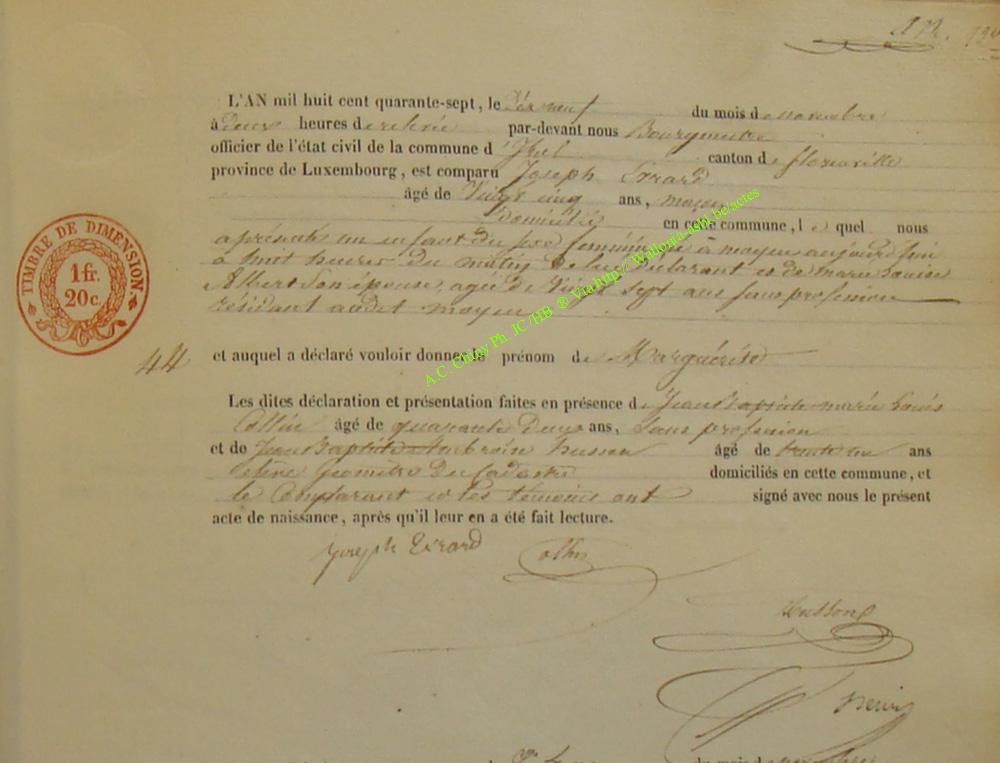 L'AN mil huit cent quarante-sept, le dix neuf du mois de novembre
à deux heures de relevée par-devant nous Bourgmestre
officier de l'état civil de la commune d'Izel canton de florenville
province de Luxembourg, est comparu Joseph Evrard
âgé de Vingt cinq ans, maçon
Domicilié en cette commune, le quel nous
a présenté un enfant du sexe féminin né à moyen aujourd'hui
à huit heures du matin de lui Déclarant et de marie Louise
Albert Son épouse, agée de Vingt Sept ans Sans profession
résidant audit moyen
44 et auquel a déclaré vouloir donner le prénom de Marguérite
Les dites déclaration et présentation faites en présence de Jean Baptiste marie Louis
Collin âgé de quarante Deux ans, Sans profession
et de Jean Baptiste Ambroise husson âgé de trente un ans
géomètre du Cadastre domiciliés en cette commune, et
le Comparant et les témoins ont signé avec nous le présent
acte de naissance, après qu'il leur en a été fait lecture.
Joseph Evrard Collin
Husson
TIMBRE DE DIMENSION
1 fr.
20 c.
A.C. Chiny Ph. JC /HB ® Via http:// Wallonia-asbl.be/actes